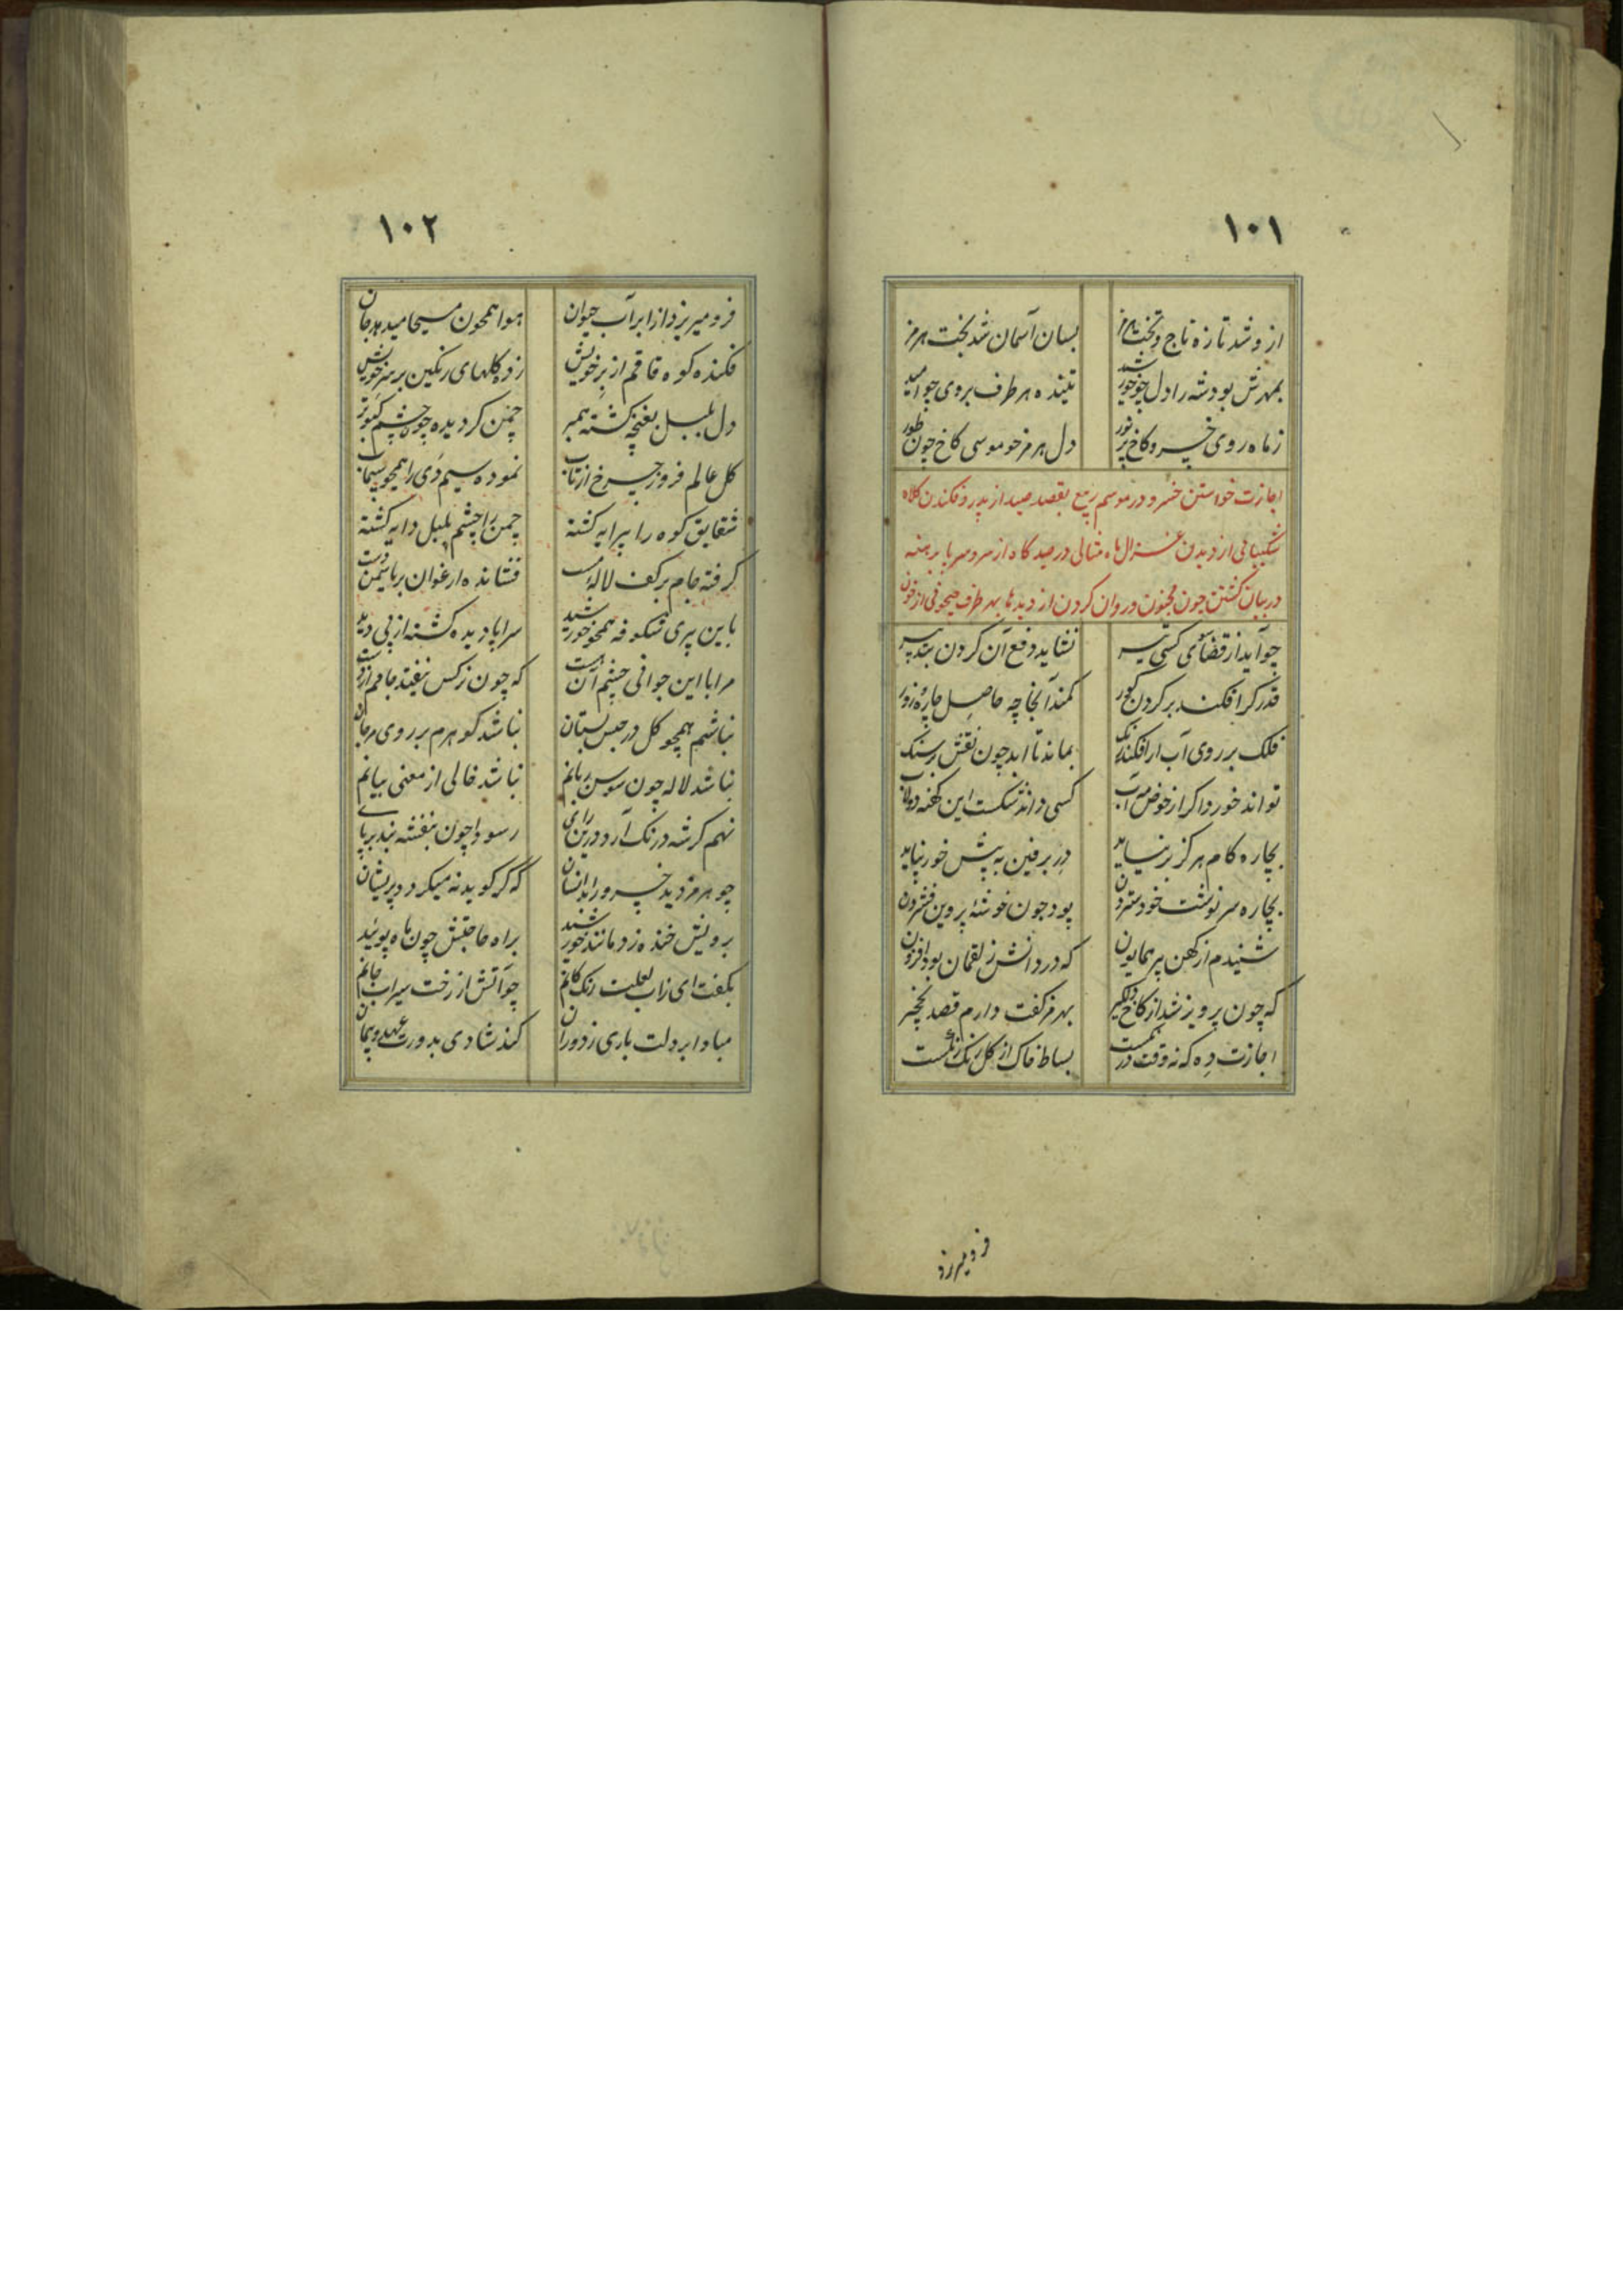 ۱۰۱
ازو شد تازه تاج و تخت هرمز بسان آسمان شد بخت هرمز
بمهرش بود شه را دل چو خورشید تنیده هر طرف بروی چو امید
ز ماه روی خسرو کاخ پر نور دل هرمز چو موسی کاخ چون طور
اجازت خواستن خسرو در موسم ربیع بقصد صید از پدر و فکندن کلاه
شکیبائی از دیدن غزال ماه مثالی در صیدگاه از سر و سر و پا برهنه
در بیابان گشتن چون مجنون و روان کردن از دیدها بهر طرف جیحونی از خون
چو آید از قضای کسی تیر نشاید دفع آن کردن بتدبیر
قدر گر افکند بر گردن گور کمند آنجا چه حاصل چاره زور
فلک بر روی آب ار افکند رنگ بماند تا ابد چون نقش بر سنگ
تواند خورد اگر از حوض مه آب کسی داند شکست این کهنه دولاب
بچاره کام هرگز بر نیاید در برفین به پیش خور نپاید
بچاره سرنوشت خود ستردن بود چون خوشه پروین فشردن
شنیدم از کهن پیر همایون که در دانش ز لقمان بود افزون
که چون پرویز شد از کاخ دلگیر بهرمز گفت دارم قصد نخچیر
اجازت ده که نه وقت درنگست بساط خاک از گل رنگ رنگست
فرو میریزد
۱۰۲
فرو میریزد از ابر آب حیوان هوا همچون مسیحا میدهد جان
فکنده کوه قاقم از بر خویش زده گلهای رنگین بر سر خویش
دل بلبل بغنچه گشته همبر چمن گردیده چون چشم کبوتر
گل عالم فروز چرخ از تاب نموده سیم دی را همچو سیماب
شقایق کوه را پیرایه گشته چمن را چشم بلبل دایه گشته
گرفته جام بر کف لاله مست فشانده ارغوان بر یاسمن دست
باین پیری شکوفه همچو خورشید سراپا دیده گشته از پی دید
مرا با این جوانی چشم آن است که چون نرگس نیفتد جامم از دست
نباشم همچو گل در حبس بستان نباشد گو هرم بر روی مرجان
نباشد لاله چون سوسن زبانم نباشد خالی از معنی بیانم
نهم گر شه درنگ آرد درین رای ز سودا چون بنفشه بند بر پای
چو هرمز دید خسرو را بدانسان که گر گوید نه میگردد پریشان
برویش خنده زد مانند خورشید براه حاجتش چون ماه پوئید
بگفت ای زاب لعلت رنگ کانم چو آتش از رخت سیراب جانم
مبادا بر دلت باری ز دوران کند شادی بدورت عهد و پیمان